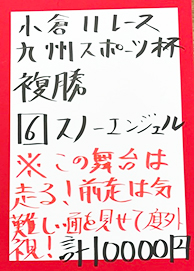 小倉11レース
九州スポーツ杯
複勝
6 スノーエンジェル
※この舞台は
走る!前走は気
難しい面を見せて度外
視!計10000円